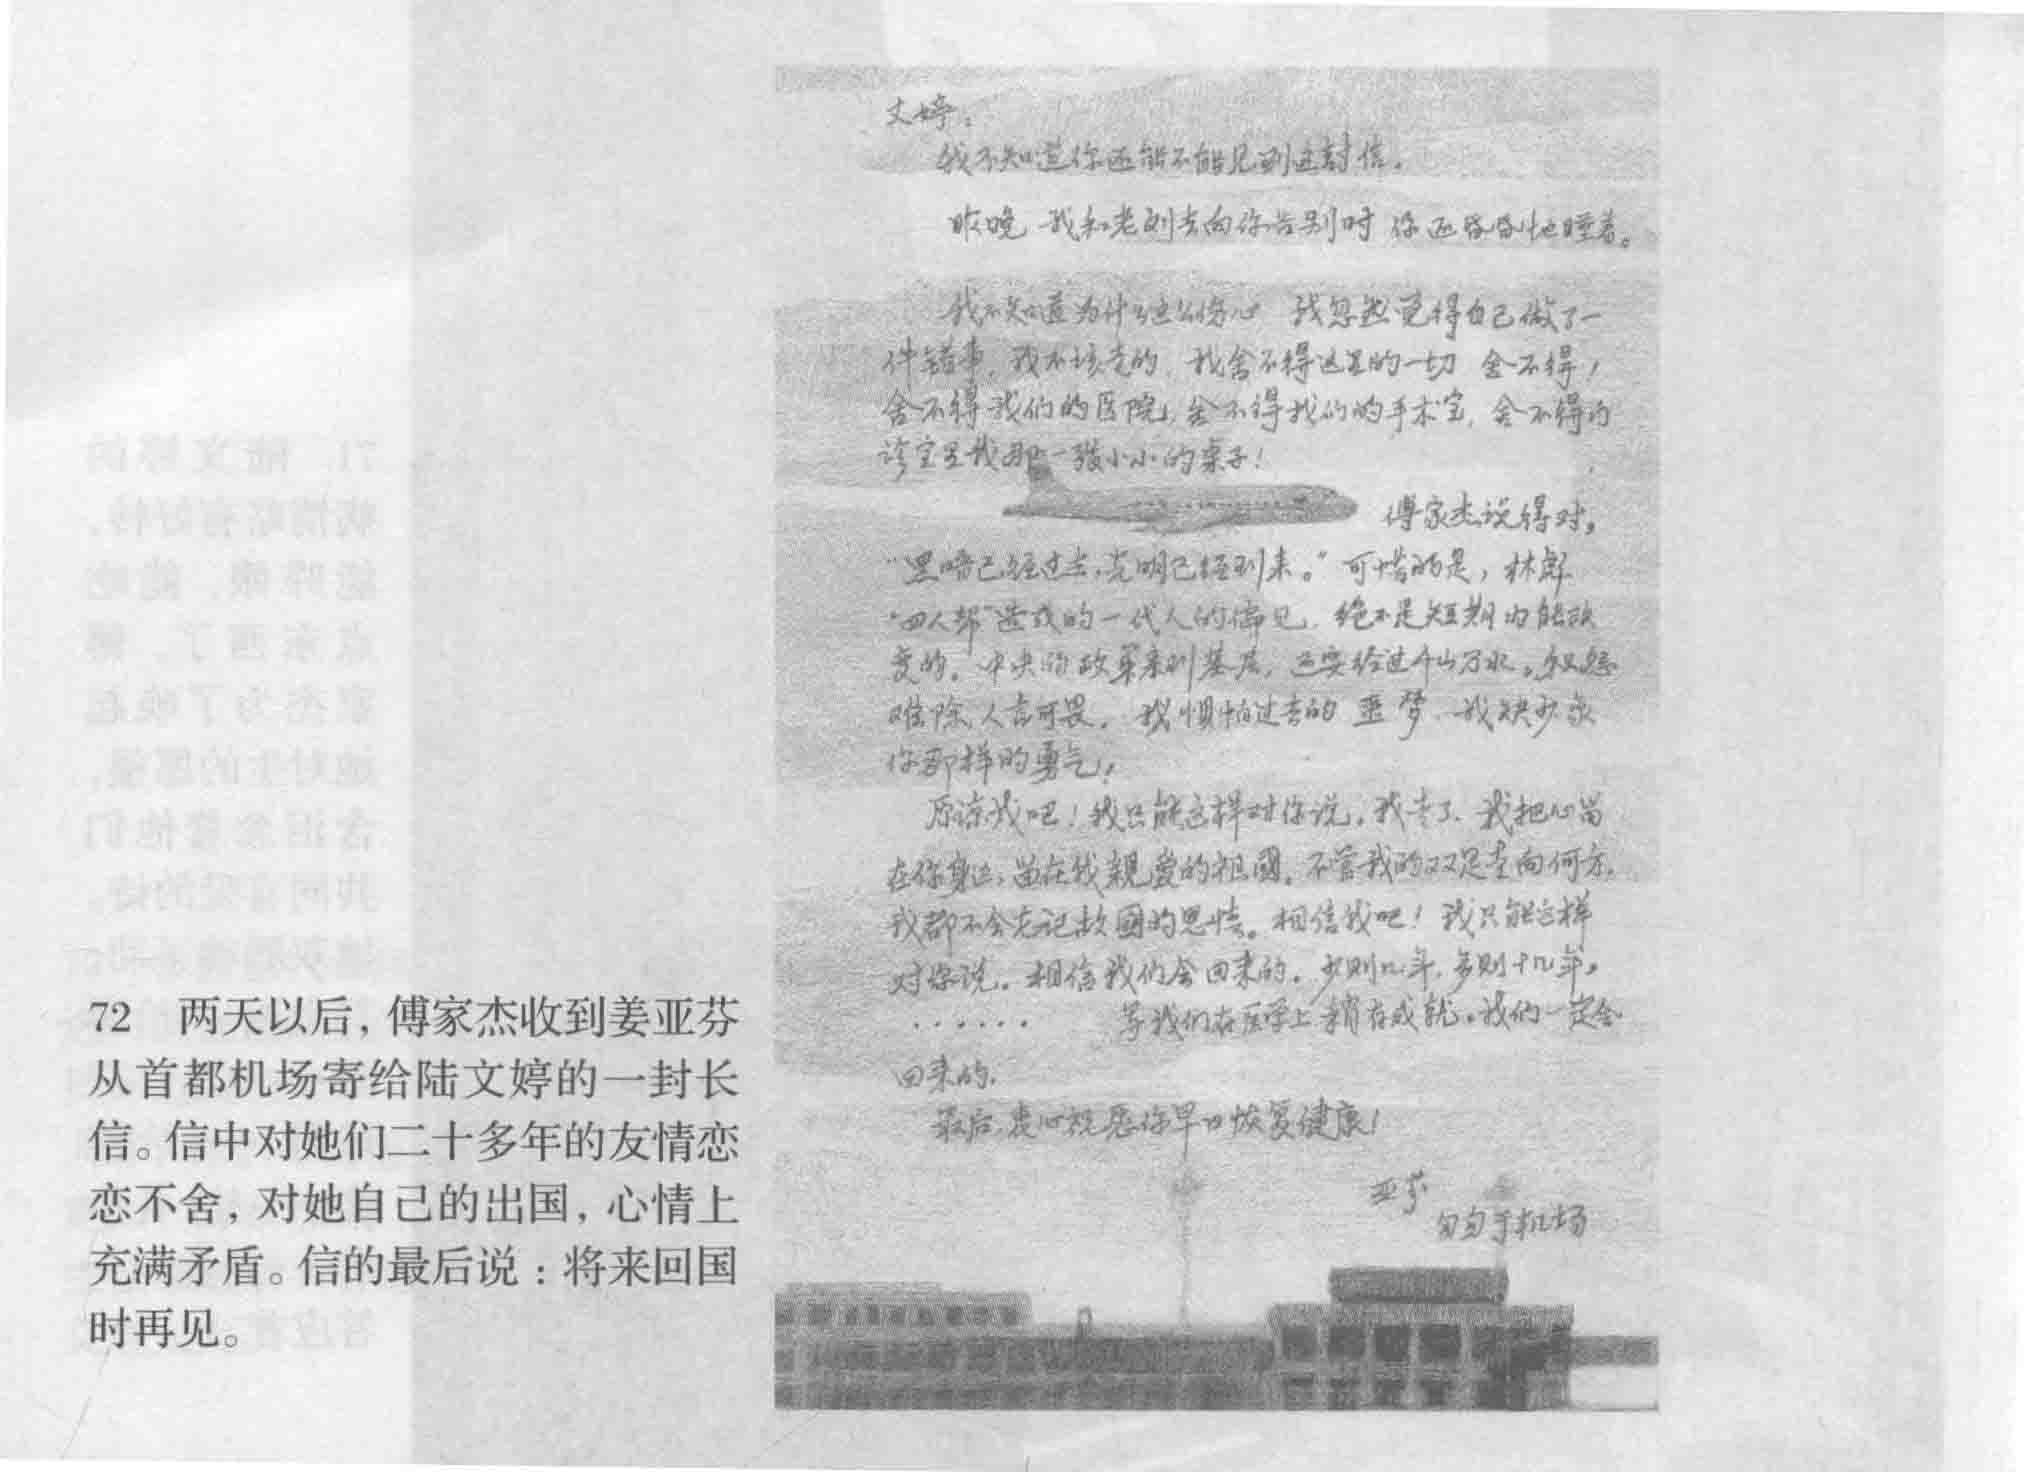 文婷：
我不知道你还能不能见到这封信。
昨晚 我和老刘去向你告别时 你还昏昏地睡着。
我不知道为什么这么伤心 我忽然觉得自己做了一
件错事，我不该走的，我舍不得这里的一切 舍不得！
舍不得我们的医院，舍不得我们的手术室，舍不得的
诊室里我那一张小小的桌子！
傅家杰说得对。
“黑暗已经过去，光明已经到来。”可惜的是，林彪
“四人帮”造成的一代人的偏见，绝不是短期内能改
变的。中央的政策来到基层，还要经过千山万水。积怨
难除 人言可畏。我惧怕过去的 噩梦，我缺少象
你那样的勇气！
原谅我吧！我只能这样对你说。我走了，我把心留
在你身边，留在我親愛的祖國。不管我的双足走向何方，
我都不会忘记故國的恩情。相信我吧！我只能这样
对你说。相信我们会回来的。少则几年，多则十几年。
······ 等我们在医学上稍有成就。我们一定会
回来的。
最后，衷心祝愿你早日恢复健康！
亚芬
匆匆于机场
72 两天以后，傅家杰收到姜亚芬
从首都机场寄给陆文婷的一封长
信。信中对她们二十多年的友情恋
恋不舍，对她自己的出国，心情上
充满矛盾。信的最后说：将来回国
时再见。